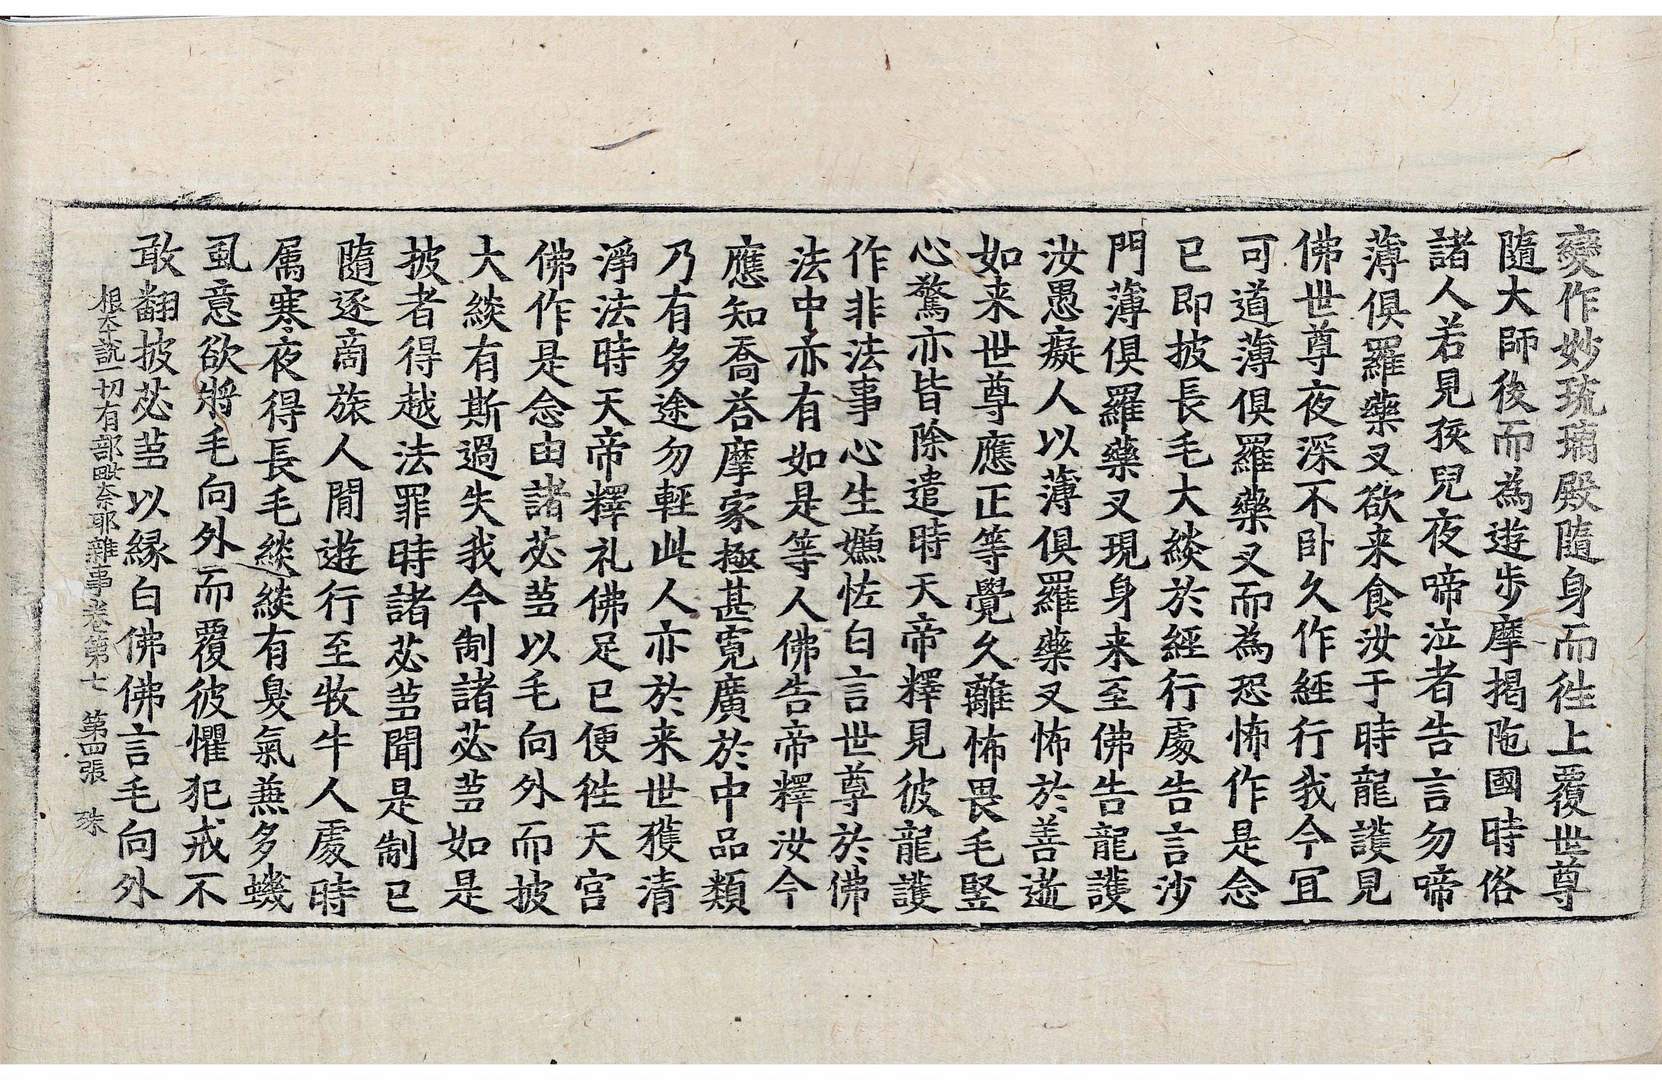 變作妙琉璃殿隨身而往上覆世尊
隨大師後而為遊步摩揭陁國時俗
諸人若見孩兒夜啼泣者告言勿啼
薄俱羅藥叉欲来食汝于時龍護見
佛世尊夜深不卧久作經行我今冝
可道薄俱羅藥叉而為恐怖作是念
已即披長毛大緂於經行處告言沙
門薄俱羅藥叉現身来至佛告龍護
汝愚癡人以薄俱羅藥叉怖於善逝
如来世尊應正等覺久離怖畏毛竪
心驚亦皆除遣時天帝釋見彼龍護
作非法事心生嫌恠白言世尊於佛
法中亦有如是等人佛告帝釋汝今
應知喬荅摩家極甚寬廣於中品類
乃有多途勿輕此人亦於来世獲清
淨法時天帝釋礼佛足已便往天宮
佛作是念由諸苾芻以毛向外而披
大緂有斯過失我今制諸苾芻如是
披者得越法罪時諸苾芻聞是制已
隨逐商旅人閒遊行至牧牛人處時
属寒夜得長毛緂緂有臭氣兼多蟣
虱意欲將毛向外而覆彼懼犯戒不
敢翻披苾芻以縁白佛佛言毛向外
根本說一切有部毗奈耶雜事卷第七　第四張　珠